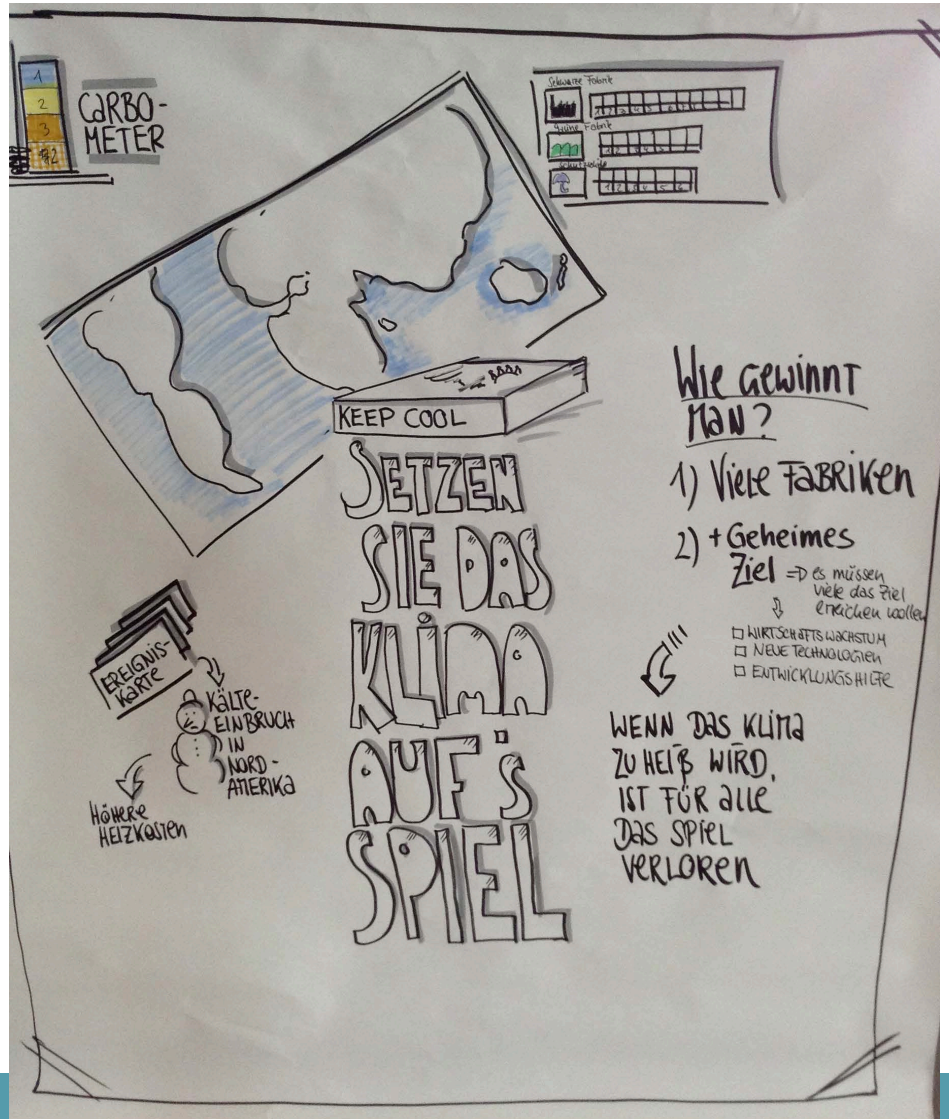 1
2
3
CARBO-
METER
Schwarze Fabrik
1 2 3 4 5 6 7 8
Grüne Fabrik
1 2 3 4 5
1 2 3 4 5 6
KEEP COOL
SETZEN
SIE DAS
KLIMA
AUF'S
SPIEL
EREIGNIS-
KARTE
KÄLTE-
EINBRUCH
IN
NORD-
AMERIKA
HÖHERE
HEIZKOSTEN
WIE GEWINNT
MAN?
1) VIELE FABRIKEN
2) + Geheimes
Ziel => es müssen
viele das Ziel
erreichen wollen
WIRTSCHAFTSWACHSTUM
NEUE TECHNOLOGIEN
ENTWICKLUNGSHILFE
WENN DAS KLIMA
ZU HEIß WIRD,
IST FÜR ALLE
DAS SPIEL
VERLOREN